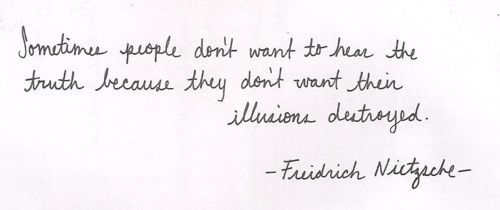 Sometimes people don't want to hear the
truth because they don't want their
illusions destroyed.
-Freidrich Nietzsche-